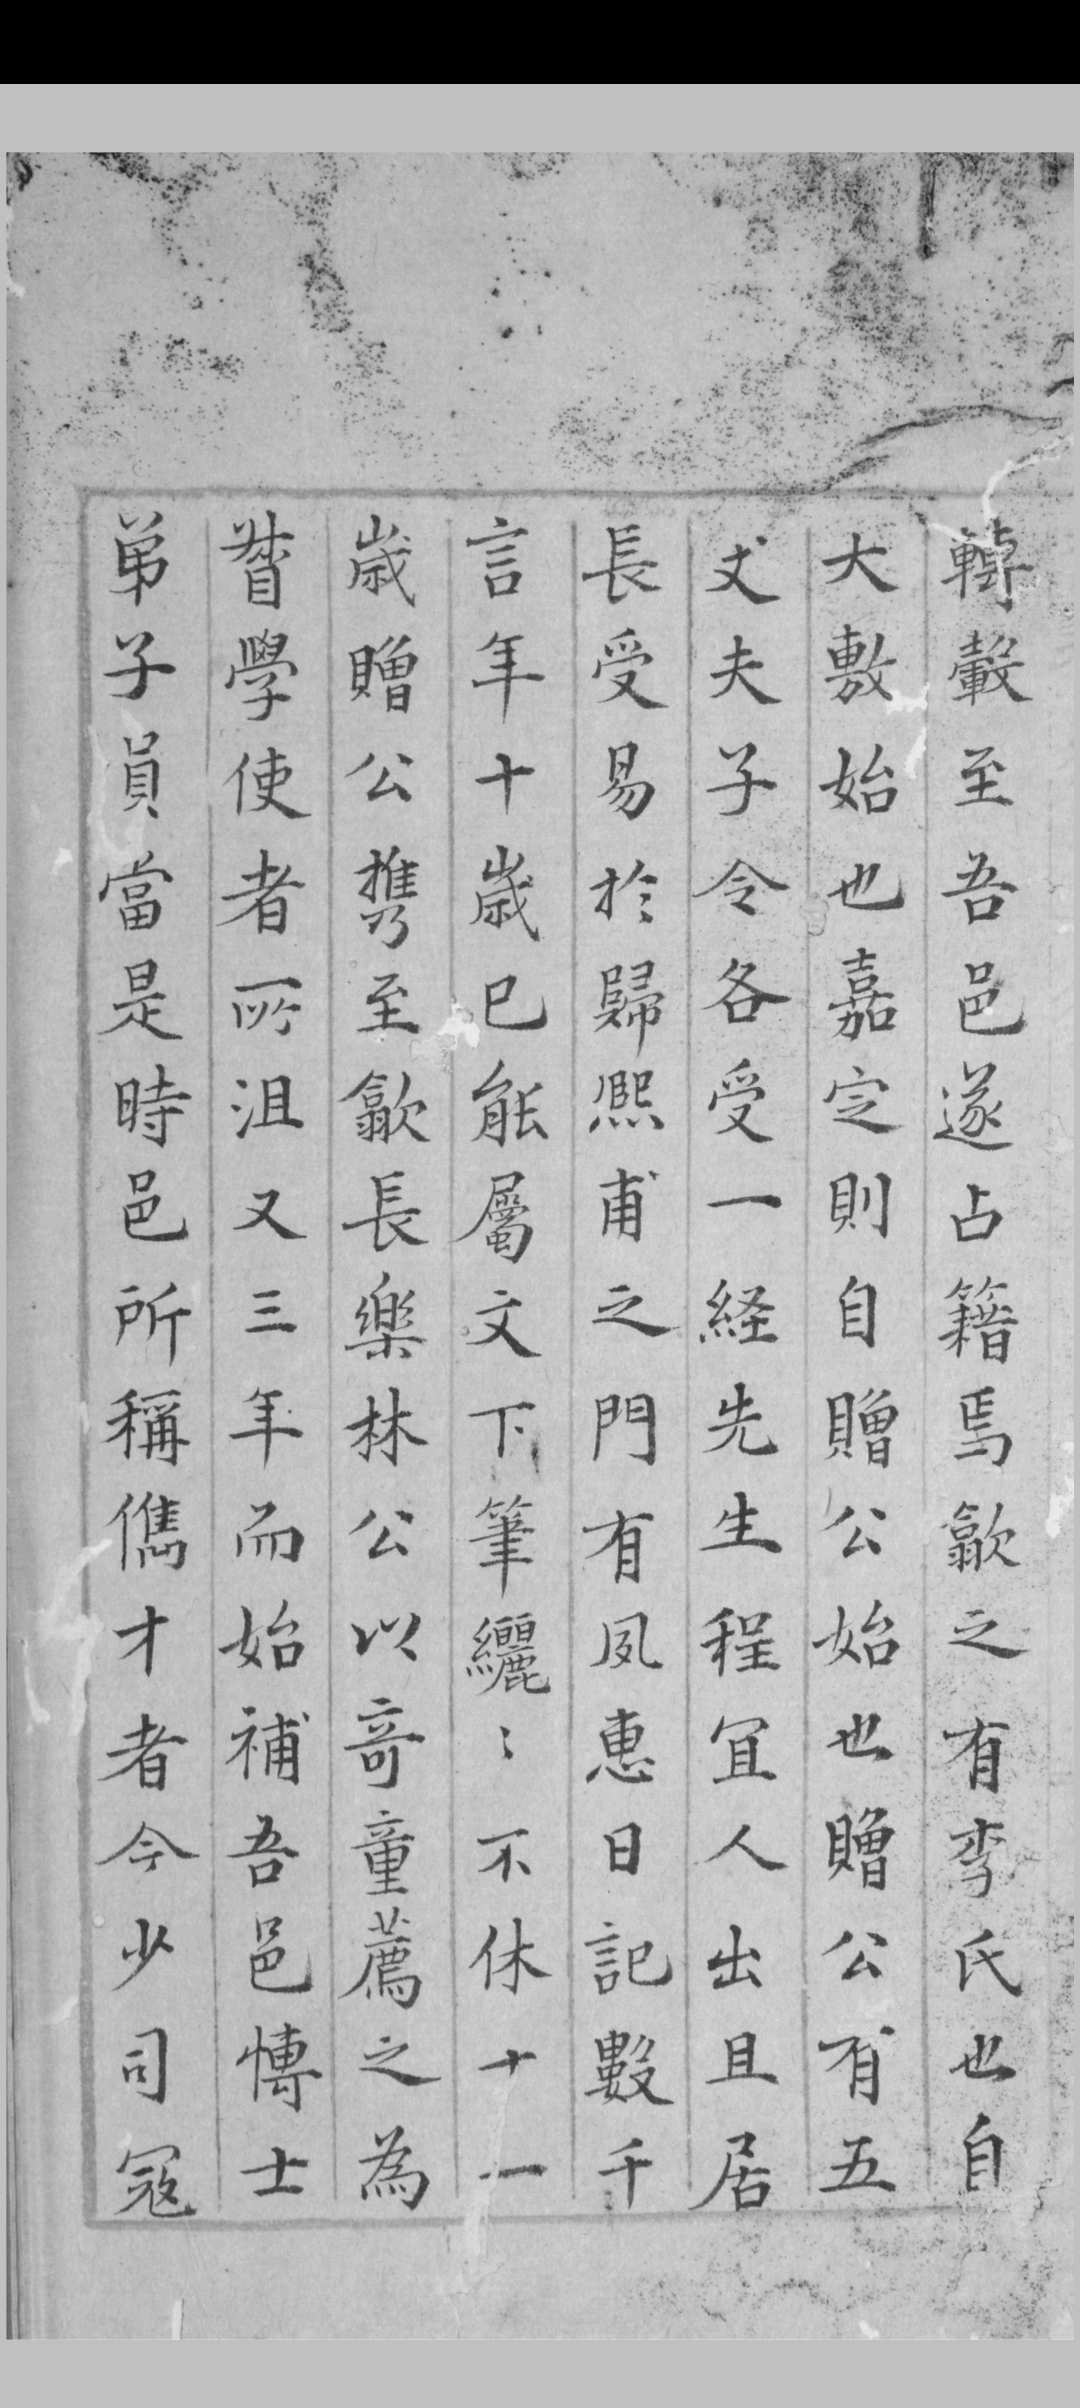 轉轂至吾邑遂占籍焉歙之有李氏也自
大敷始也嘉定則自贈公始也贈公有五
丈夫子令各受一経先生程宜人出且居
長受易於歸熙甫之門有夙惠日記數千
言年十歲已能屬文下筆纚〻不休十一
歲贈公携至歙長樂林公以竒童薦之為
督學使者所沮又三年而始補吾邑博士
弟子員當是時邑所稱儁才者今少司寇